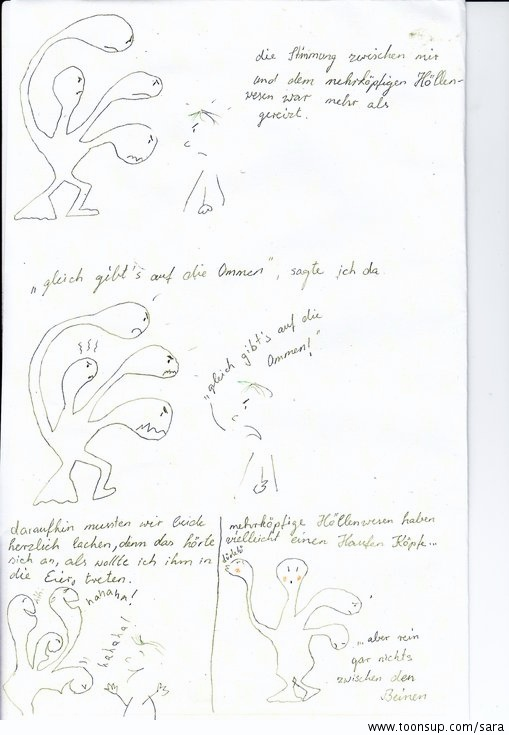 die Stimmung zwischen mir
und dem mehrköpfigen Höllen-
wesen war mehr als
gereizt.
„gleich gibt's auf die Ommen", sagte ich da
„gleich gibt's auf die
Ommen!"
daraufhin mussten wir beide
herzlich lachen, denn das hörte
sich an, als wollte ich ihm in
die Eier treten.
hahaha!
hahaha!
mehrköpfige Höllenwesen haben
vielleicht einen Haufen Köpfe...
...aber rein
gar nichts
zwischen den
Beinen
www.toonsup.com/sara